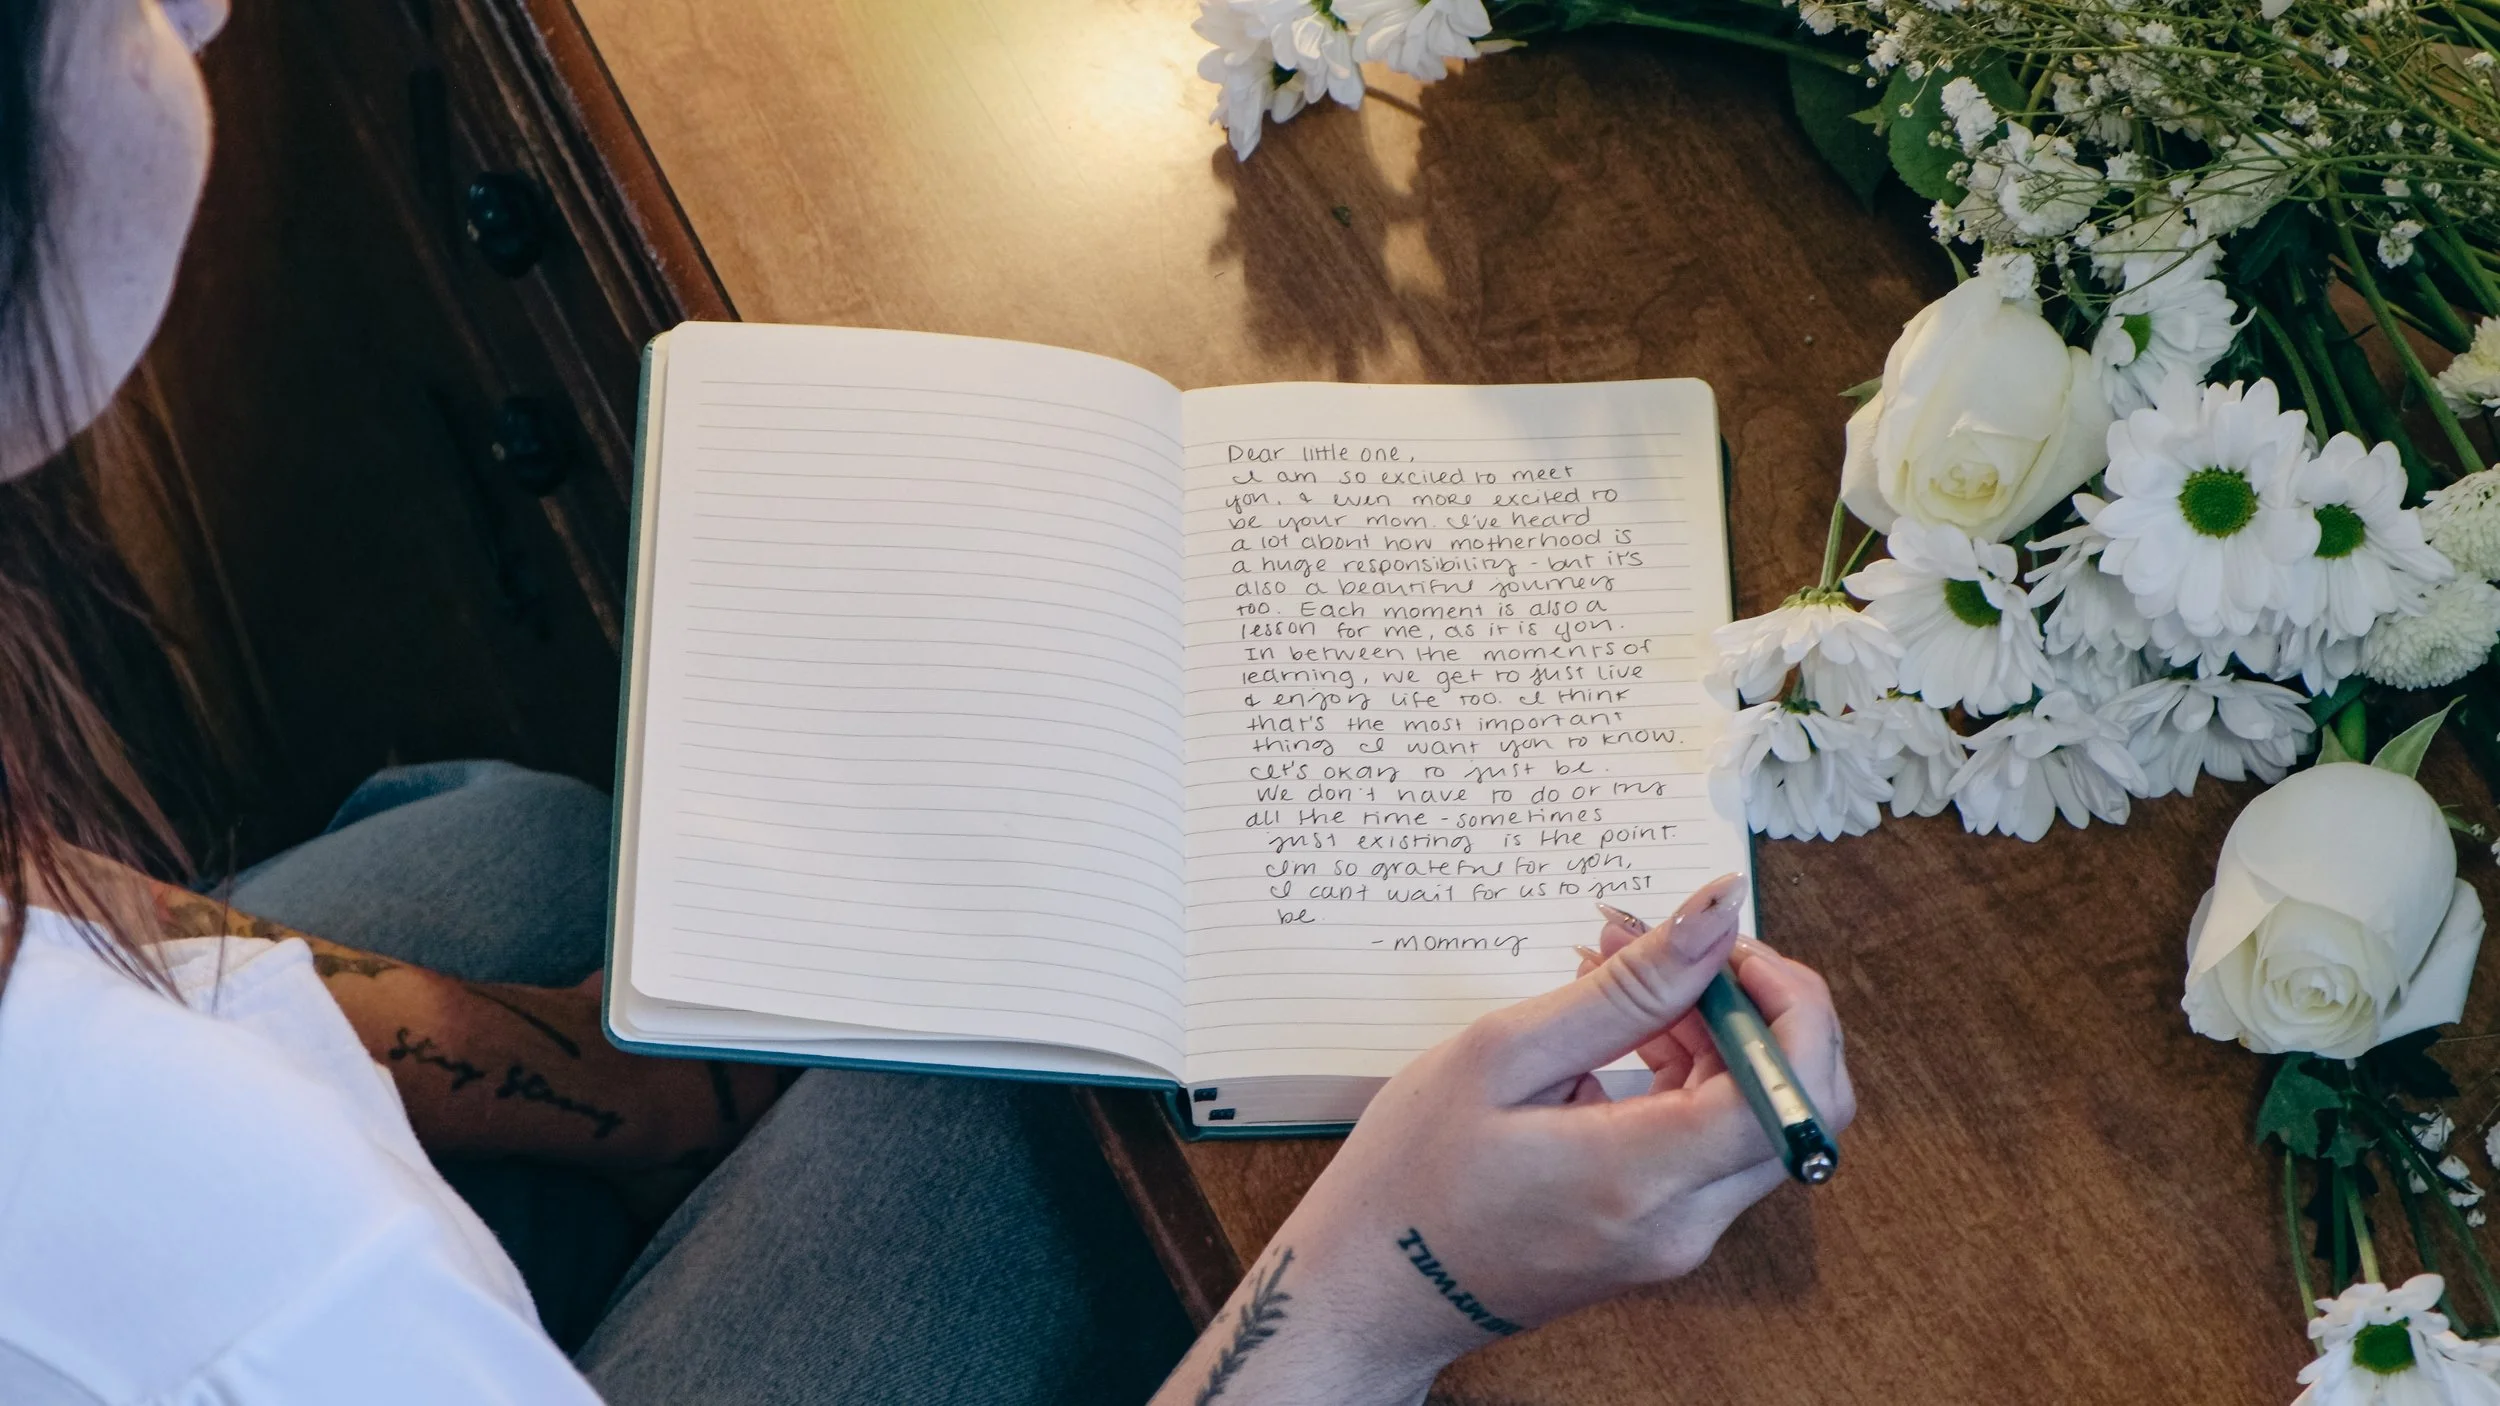 Dear little one,
I am so excited to meet
you. & even more excited to
be your mom. I've heard
a lot about how motherhood is
a huge responsibility - but it's
also a beautiful journey
too. Each moment is also a
lesson for me, as it is you.
In between the moments of
learning, we get to just live
& enjoy life too. I think
that's the most important
thing I want you to know.
It's okay to just be.
We don't have to do or try
all the time - sometimes
just existing is the point.
I'm so grateful for you,
I can't wait for us to just
be.
- mommy
stay